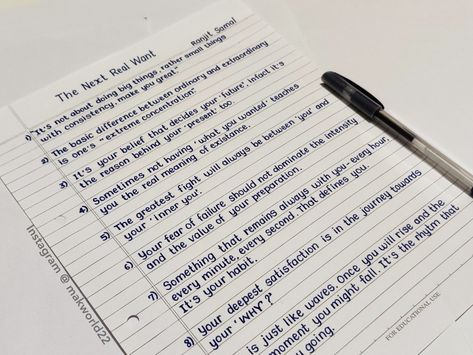 Ranjit Samal
The Next Real Want
1) It's not about doing big things, rather small things
with consistency, make you great."
2) The basic difference between ordinary and extraordinary
is one's "extreme concentration".
3) It's your belief that decides your 'future', infact it's
the reason behind your 'present' too.
4) Sometimes not having 'what you wanted' teaches
you the real meaning of existance.
5) The greatest fight will always be between 'you' and
your 'inner you'.
6) Your fear of failure should not dominate the intensity
and the value of your preparation.
7) Something that remains always with you - every hour,
every minute, every second. That defines you.
It's your habit.
8) Your deepest satisfaction is in the journey towards
your 'WHY?'
is just like waves. Once you will rise and the
moment you might fall. It's the rhytm that
you going.
FOR EDUCATIONAL USE
Instagram @ makworld22